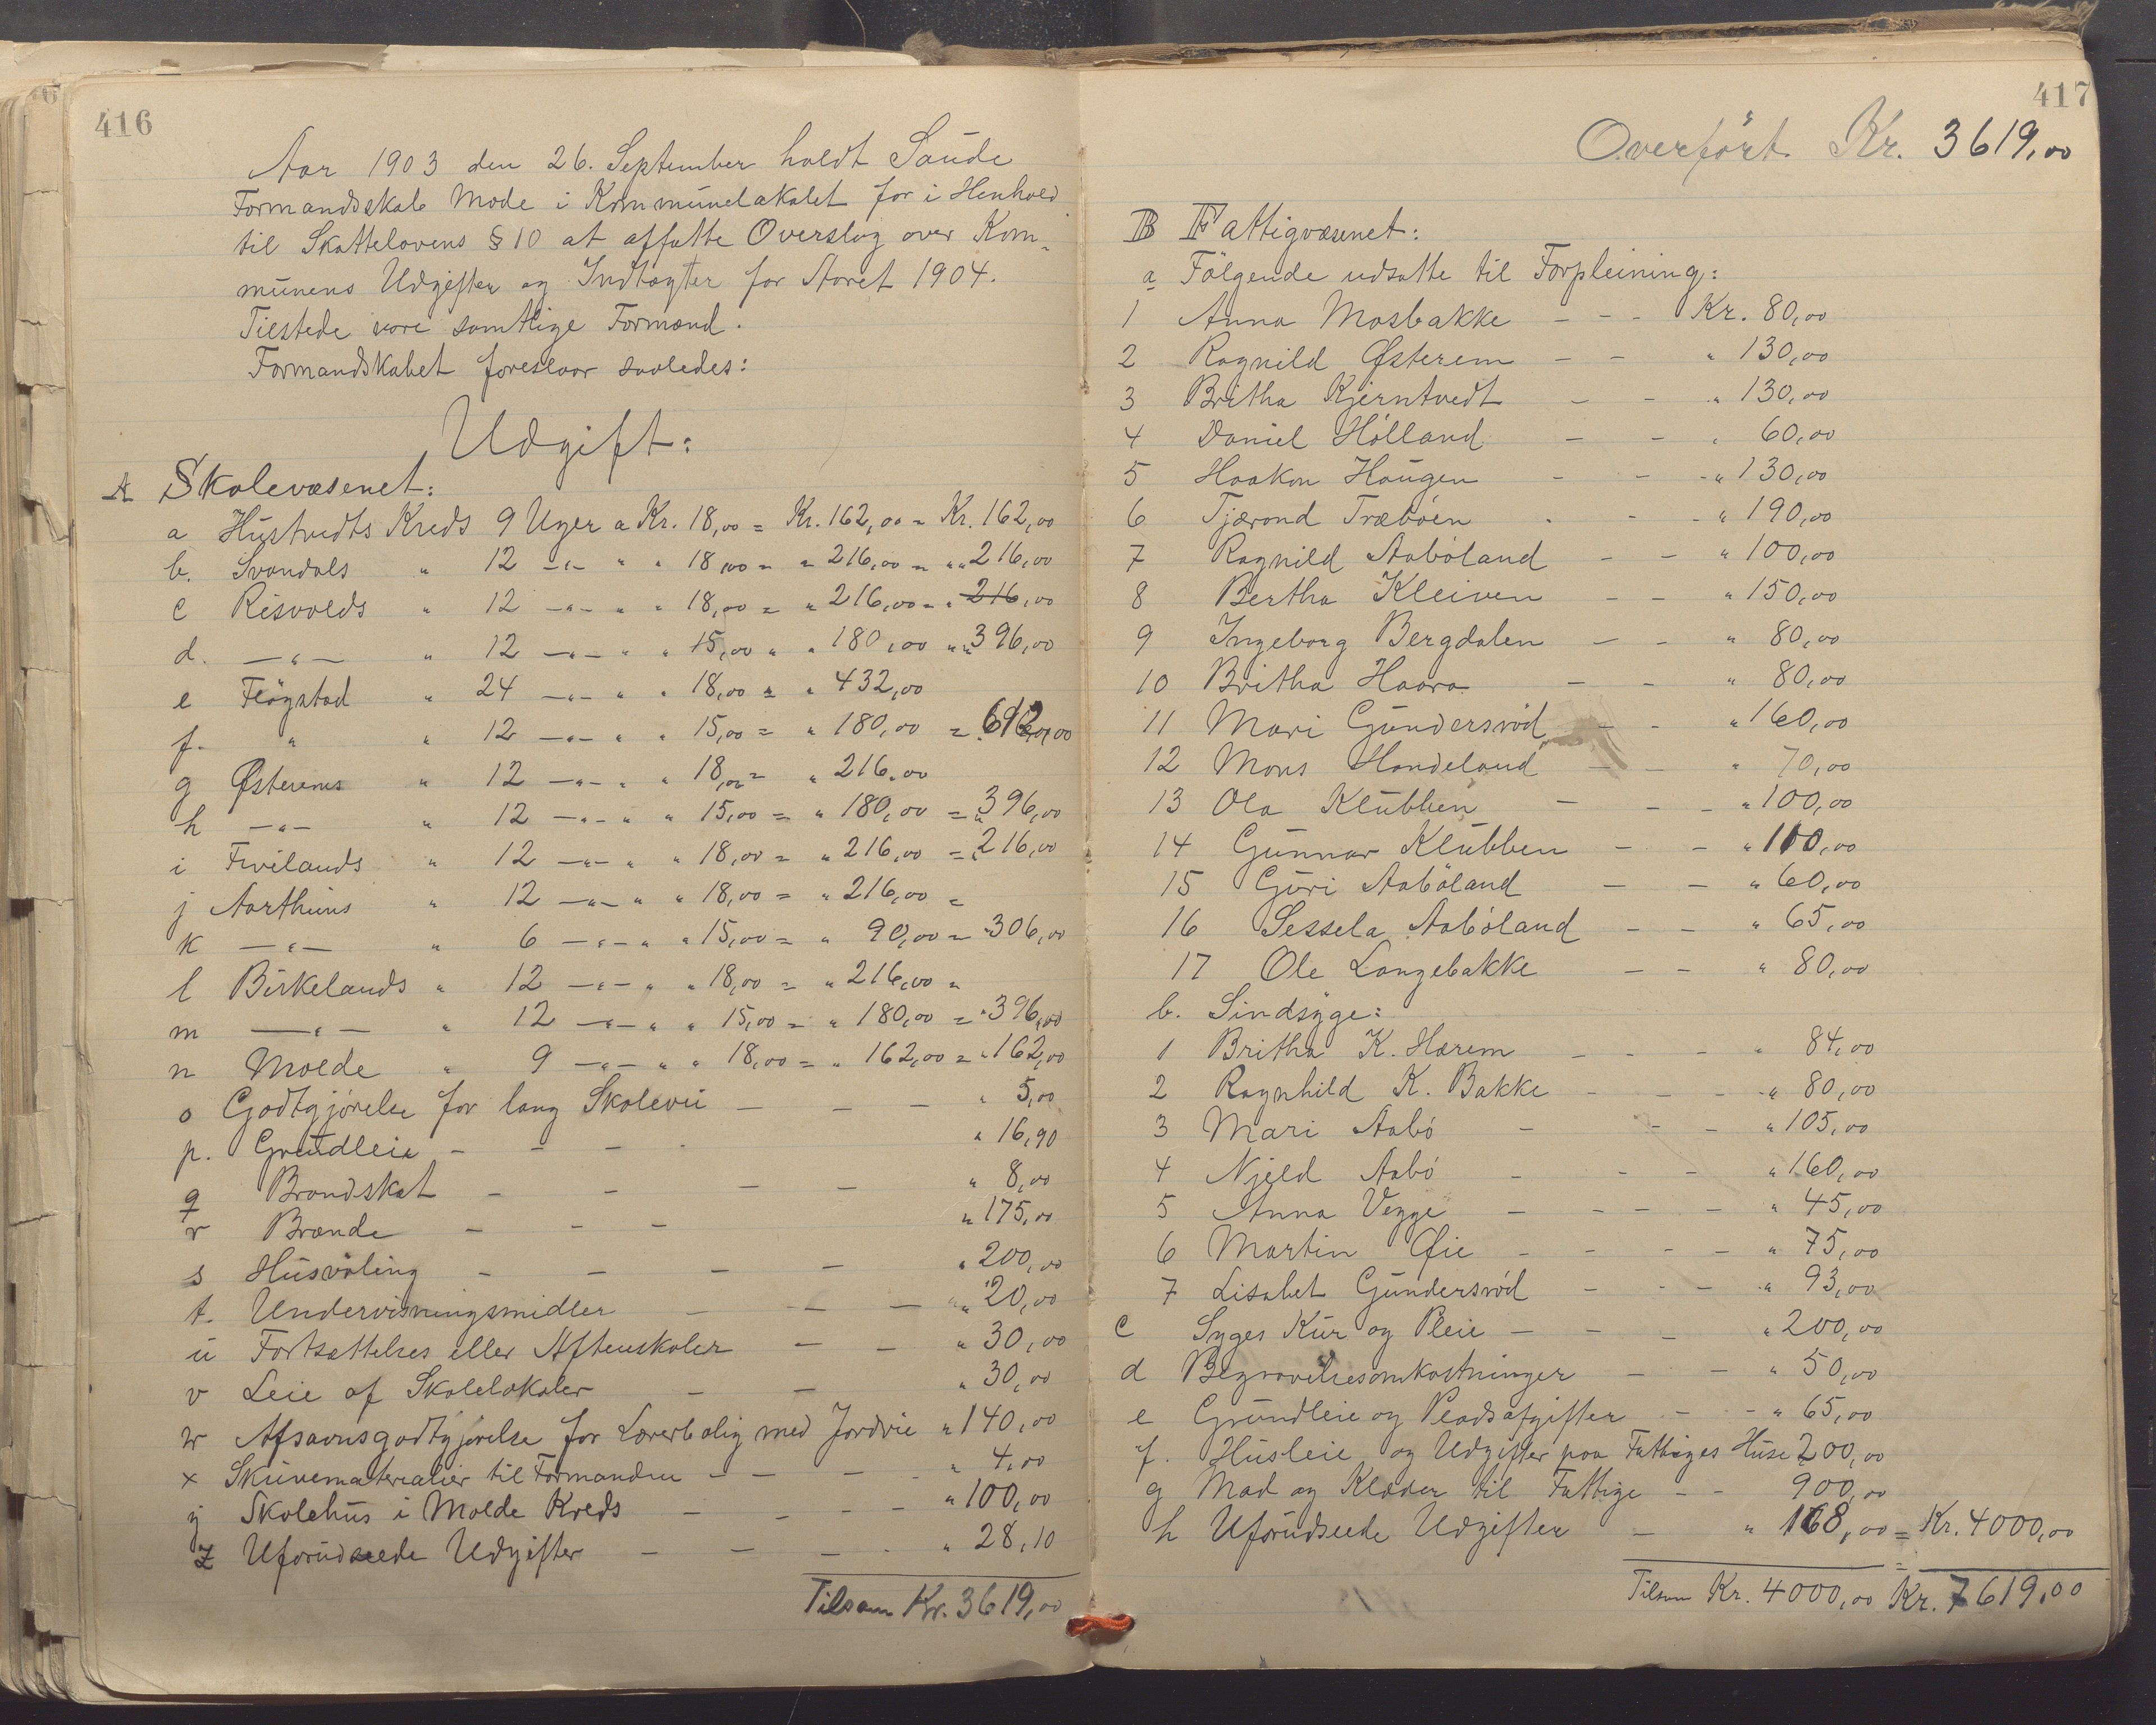 416
Aar 1903 den 26. September holdt Saude
Formandsskab Møde i Kommunelokalet for i Henhold
til Skattelovens § 10 at affatte Overslag over Kom-
munens Udgifter og Indtægter for Aaret 1904.
Tilstede vare samtlige Formænd.
Formandskabet foreslaar saaledes:
Udgift:
A Skolevæsenet:
a Hustvedts Kreds 9 Uger a Kr. 18,00 = Kr. 162,00 = Kr. 162,00
b. Svandals " 12 -"- " " 18,00 = " 216,00 = " 216,00
c Risvolds " 12 -"- " " 18,00 = " 216,00 = " 216,00
d. -"- " 12 -"- " " 15,00 " " 180,00 " " 396,00
e Fløgstad " 24 -"- " " 18,00 = " 432,00
f. " " 12 -"- " " 15,00 = " 180,00 = 612,00
g Østerems " 12 -"- " " 18,00 = " 216,00
h -"- " 12 -"- " " 15,00 = " 180,00 = " 396,00
i Fivilands " 12 -"- " " 18,00 = " 216,00 = " 216,00
j Aarthuns " 12 -"- " " 18,00 = " 216,00 =
k -"- " 6 -"- " " 15,00 = " 90,00 = " 306,00
l Birkelands " 12 -"- " " 18,00 = " 216,00 "
m -"- " 12 -"- " " 15,00 = " 180,00 = " 396,00
n Molde " 9 -"- " " 18,00 = " 162,00 = " 162,00
o Godtgjørelse for lang Skolevei - - - " 5,00
p. Grundleie - - - " 16,90
q Brandskat - - - - " 8,00
r Brænde - - - " 175,00
s Husvøling - - - - " 200,00
t. Undervisningsmidler - - - " 20,00
u Fortsættelses eller Aftenskoler - - " 30,00
v Leie af Skolelokaler - - " 30,00
w Afsavnsgodtgjørelse for Lærerbolig med Jordvie " 140,00
x Skrivematerialier til Formanden - - - " 4,00
y Skolehus i Molde Kreds - - - - " 100,00
z Uforudseede Udgifter - - - - " 28,10
Tilsam Kr. 3619,00
417
Overført Kr. 3619,00
B Fattigvæsenet:
a Følgende udsatte til Forpleining:
1 Anna Mosbakke - - - Kr. 80,00
2 Ragnild Østerem - - " 130,00
3 Britha Kjerntvedt - - " 130,00
4 Daniel Hølland - - " 60,00
5 Haakon Haugen - - " 130,00
6 Tjærand Træbøen - - - " 190,00
7 Ragnild Aabøland - - " 100,00
8 Bertha Kleiven - - " 150,00
9 Ingeborg Bergdalen - - " 80,00
10 Britha Haara - - " 80,00
11 Mari Gundersrød - - " 160,00
12 Mons Handeland - - " 70,00
13 Ola Klubben - - - " 100,00
14 Gunnar Klubben - - " 100,00
15 Guri Aabøland - - " 60,00
16 Sessela Aabøland - - " 65,00
17 Ole Langebakke - - " 80,00
b. Sindsyge:
1 Britha K. Hærem - - - " 84,00
2 Ragnhild K. Bakke - - - " 80,00
3 Mari Aabø - - - " 105,00
4 Njeld Aabø - - - " 160,00
5 Anna Vegge - - - - " 45,00
6 Martin Øie - - - - " 75,00
7 Lisabet Gundersrød - - - " 93,00
c Syges Kur og Pleie - - - " 200,00
d Begravelsesomkostninger - - " 50,00
e Grundleie og Pladsafgifter - - " 65,00
f. Husleie og Udgifter paa Fattiges Huse 200,00
g Mad og Klæder til Fattige - - 900,00
h Uforudseede Udgifter - " 168,00 = Kr. 4000,00
Tilsam Kr. 4000,00 = Kr. 7619,00